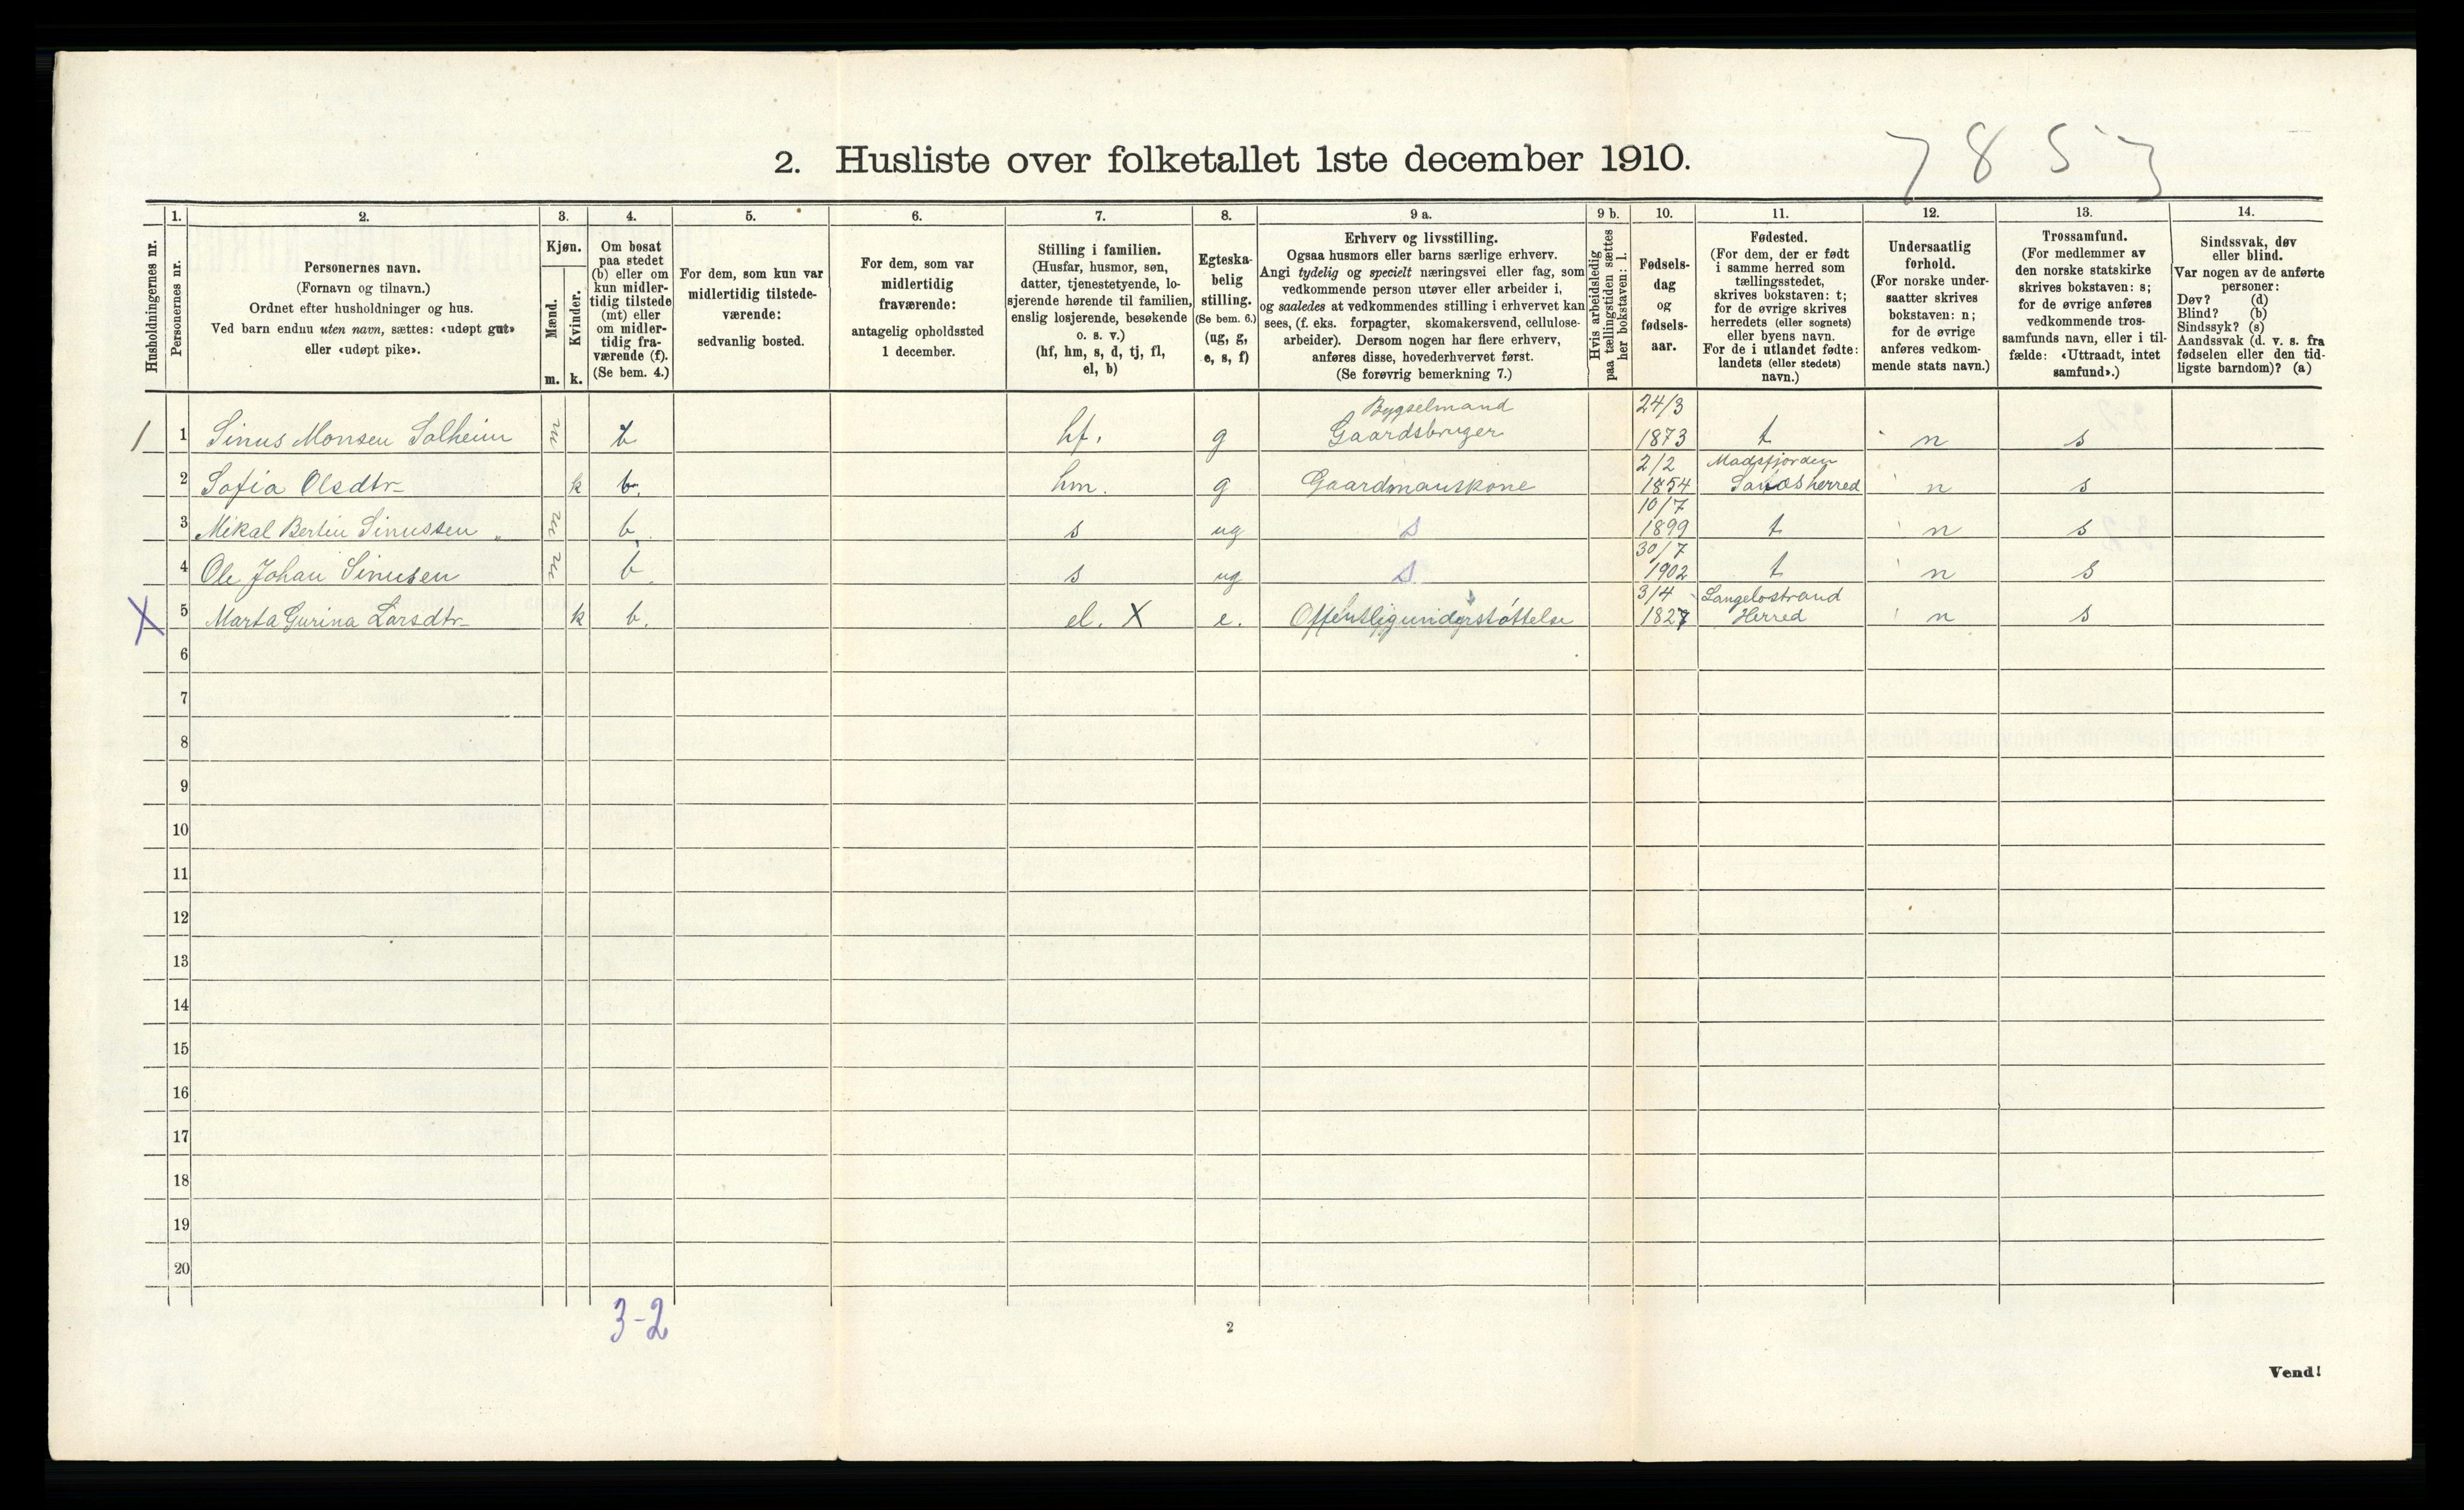 2. Husliste over folketallet 1ste december 1910.
7853
1. 2. 3. 4. 5. 6. 7. 8. 9 a. 9 b. 10. 11. 12. 13. 14.
Husholdningernes nr.
Personernes nr.
Personernes navn.
(Fornavn og tilnavn.)
Ordnet efter husholdninger og hus.
Ved barn endnu uten navn, sættes: «udøpt gut»
eller «udøpt pike».
Kjøn.
Mænd.
Kvinder.
m. k.
Om bosat
paa stedet
(b) eller om
kun midler-
tidig tilstede
(mt) eller
om midler-
tidig fra-
værende (f).
(Se bem. 4.)
For dem, som kun var
midlertidig tilstede-
værende:
sedvanlig bosted.
For dem, som var
midlertidig
fraværende:
antagelig opholdssted
1 december.
Stilling i familien.
(Husfar, husmor, søn,
datter, tjenestetyende, lo-
sjerende hørende til familien,
enslig losjerende, besøkende
o. s. v.)
(hf, hm, s, d, tj, fl,
el, b)
Egteska-
belig
stilling.
(Se bem. 6.)
(ug, g,
e, s, f)
Erhverv og livsstilling.
Ogsaa husmors eller barns særlige erhverv.
Angi tydelig og specielt næringsvei eller fag, som
vedkommende person utøver eller arbeider i,
og saaledes at vedkommendes stilling i erhvervet kan
sees, (f. eks. forpagter, skomakersvend, cellulose-
arbeider). Dersom nogen har flere erhverv,
anføres disse, hovederhvervet først.
(Se forøvrig bemerkning 7.)
Hvis arbeidsledig
paa tællingstiden sættes
her bokstaven: l.
Fødsels-
dag
og
fødsels-
aar.
Fødested.
(For dem, der er født
i samme herred som
tællingsstedet,
skrives bokstaven: t;
for de øvrige skrives
herredets (eller sognets)
eller byens navn.
For de i utlandet fødte:
landets (eller stedets)
navn.)
Undersaatlig
forhold.
(For norske under-
saatter skrives
bokstaven: n;
for de øvrige
anføres vedkom-
mende stats navn.)
Trossamfund.
(For medlemmer av
den norske statskirke
skrives bokstaven: s;
for de øvrige anføres
vedkommende tros-
samfunds navn, eller i til-
fælde: «Uttraadt, intet
samfund».)
Sindssvak, døv
eller blind.
Var nogen av de anførte
personer:
Døv? (d)
Blind? (b)
Sindssyk? (s)
Aandssvak (d. v. s. fra
fødselen eller den tid-
ligste barndom)? (a)
Bygselmand 24/3
1 1 Sinus Monsen Solheim m b hf. g Gaardsbruger 1873 t n s
2/2 Madsfjorden
2 Sofia Olsdtr k b. hm. g Gaardmanskone 1854 herred n s
10/7
3 Mikal Bertin Sinussen m b. s ug s 1899 t n s
30/7
4 Ole Johan Sinusen m b. s ug s 1902 t n s
3/4 Langelostrand
X 5 Marta Gurina Larsdtr k b. el. X e. Offentligunderstøttelse 1827 Herred n s
6
7
8
9
10
11
12
13
14
15
16
17
18
19
20
3-2
2
Vend!